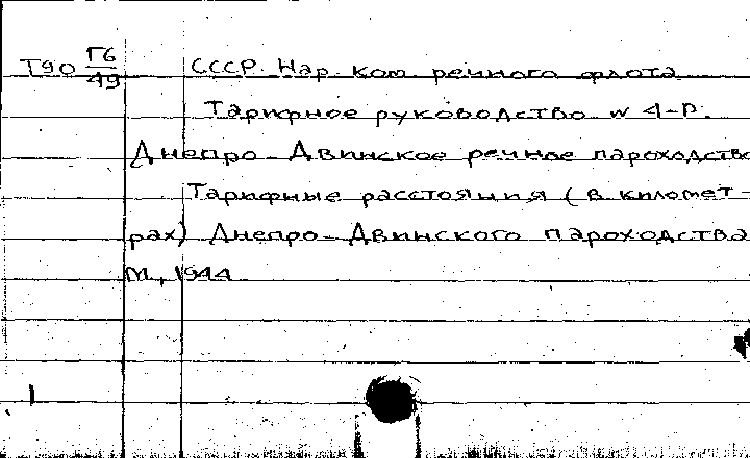 Т90 Г6/49 СССР. Нар. ком. речного флота
Тарифное руководство № 4-Р.
Днепро-Двинское речное пароходство
Тарифные расстояния (в километ
рах) Днепро-Двинского пароходства
М., 1944